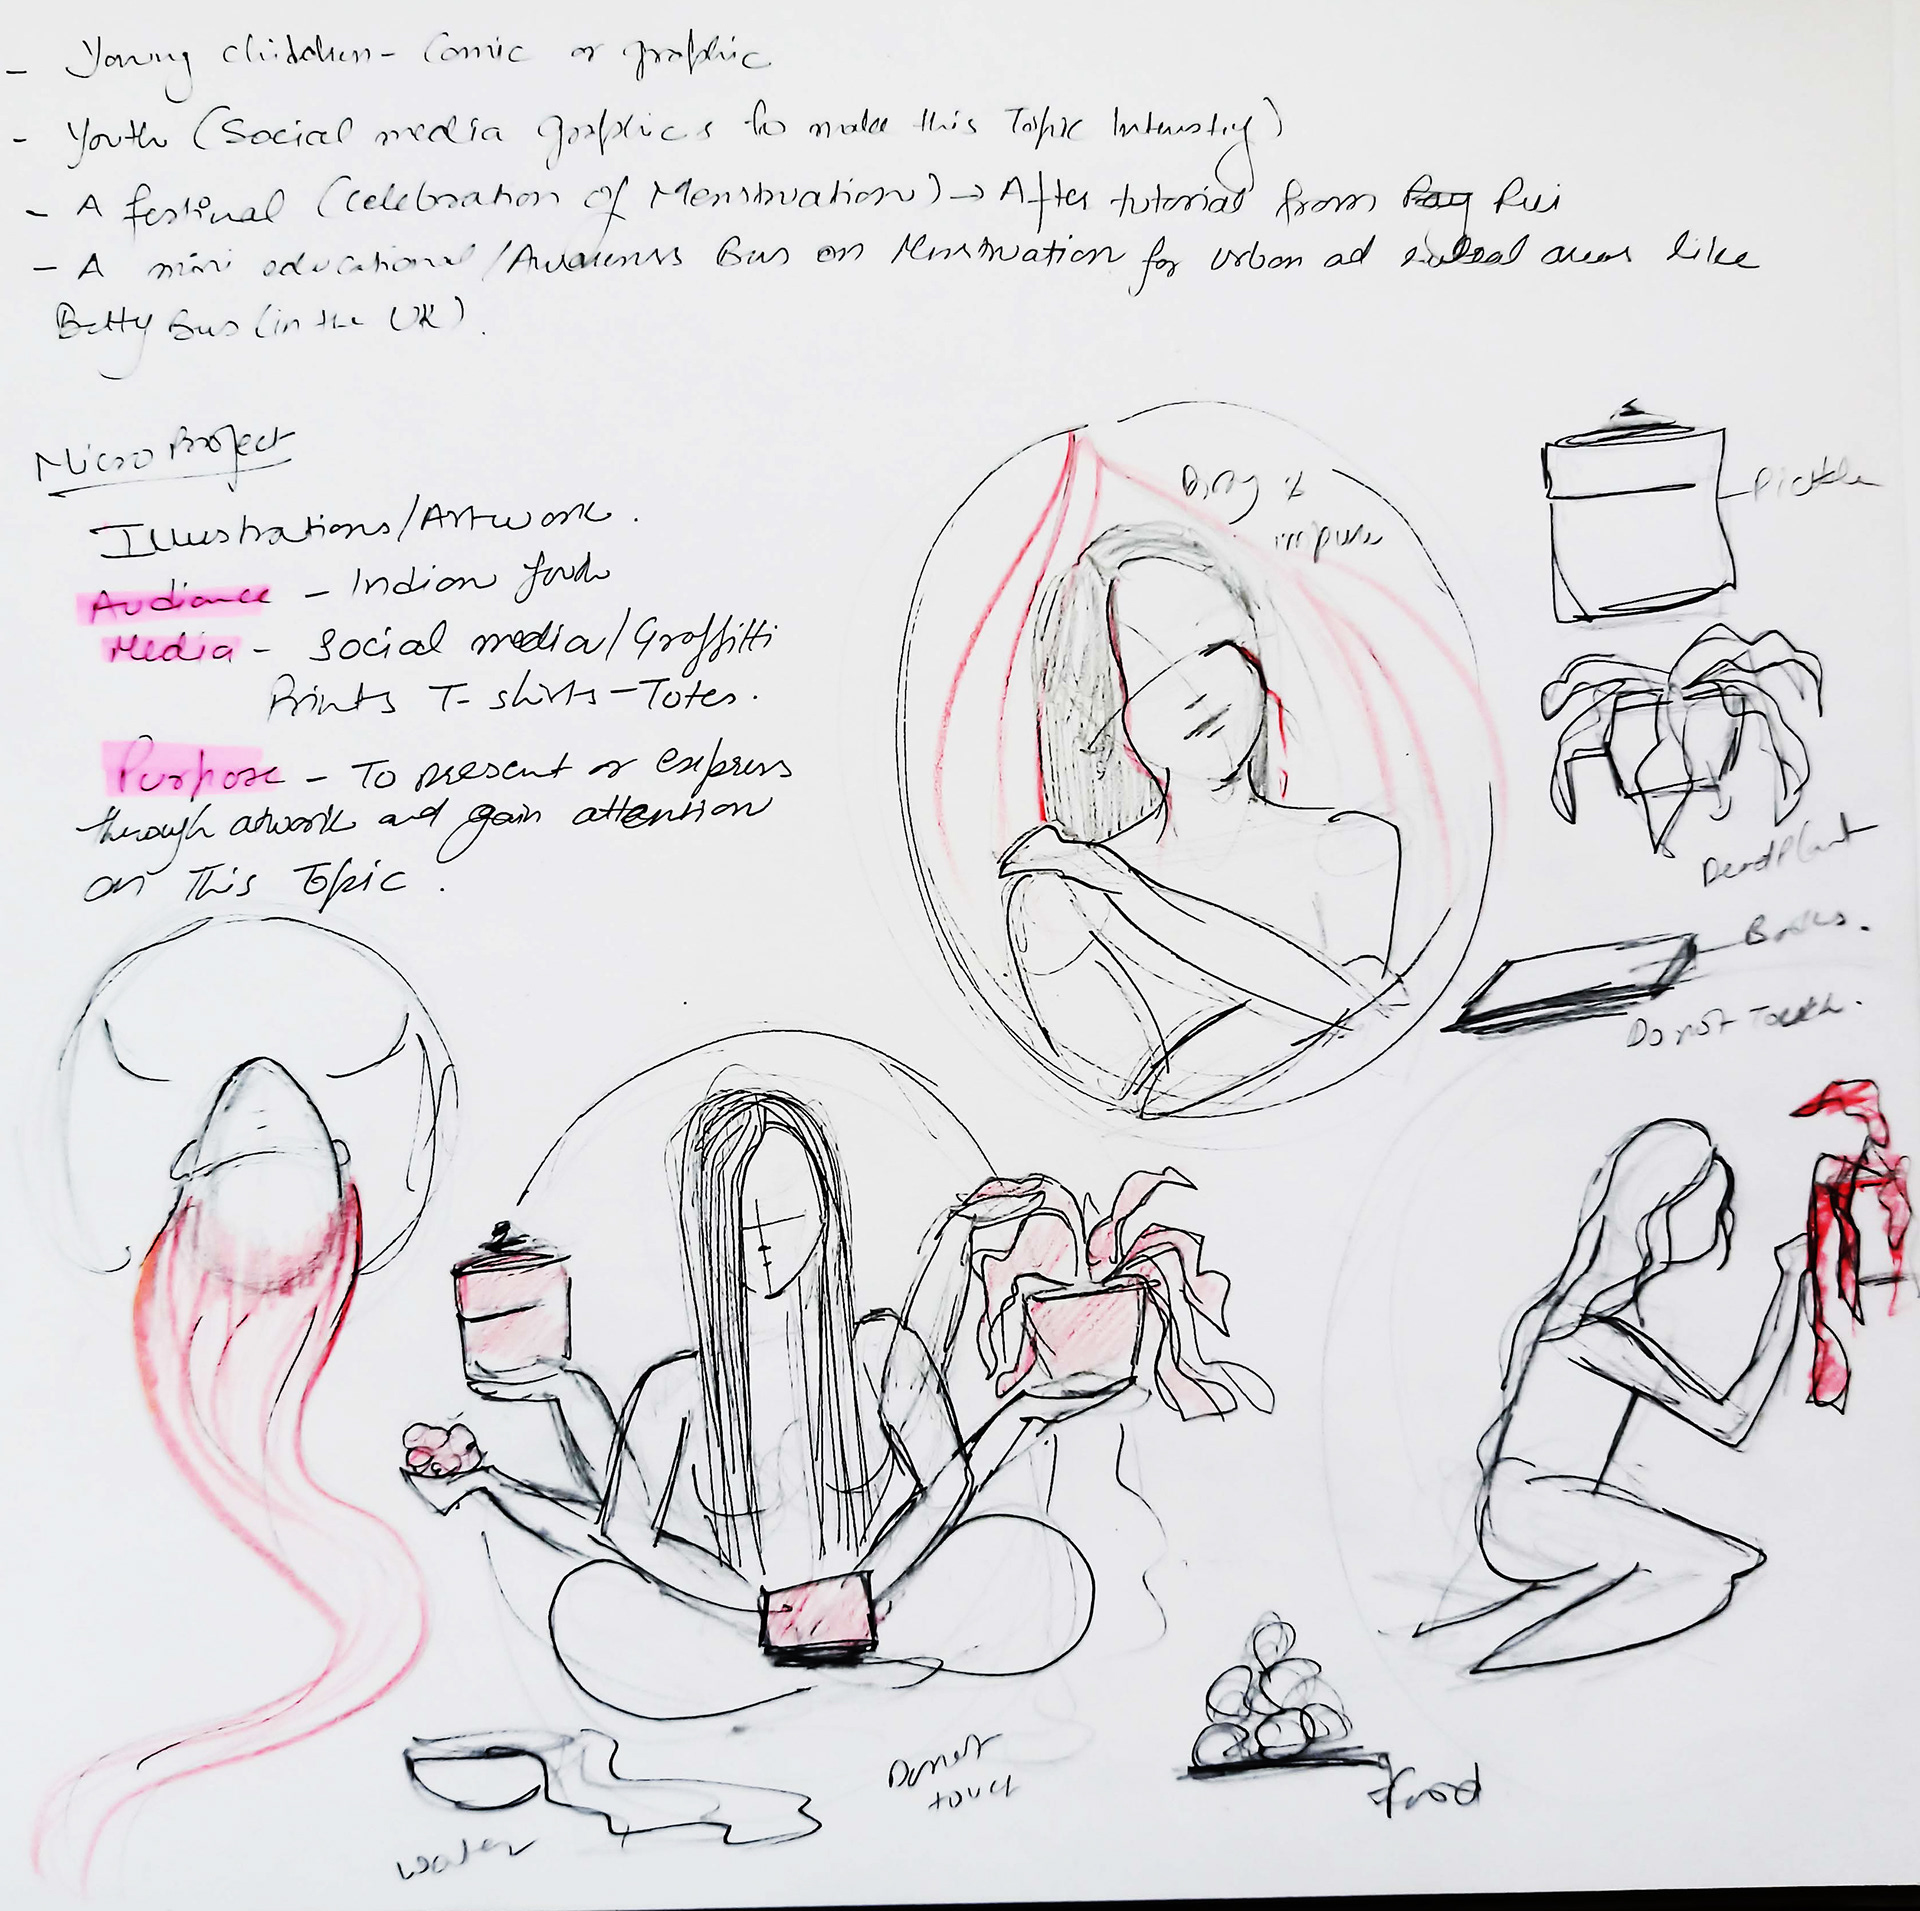 - Young children - Comic or graphic
- Youth (Social media graphics to make this Topic Interesting)
- A festival (celebration of Menstruation) → After tutorial from
- A mini educational/Awareness Bus on Menstruation for urban ad areas like
Betty Bus (in the UK).
Micro Project
Illustrations/Artwork.
Audiance - Indian
Media - Social media/Graffitti
Prints T-shirts - Totes.
Purpose - To present or express
through artwork and gain attention
on This Topic.
impure
Pickle
Dead Plant
Books.
Do not Touch.
Do not
touch
Food
Water